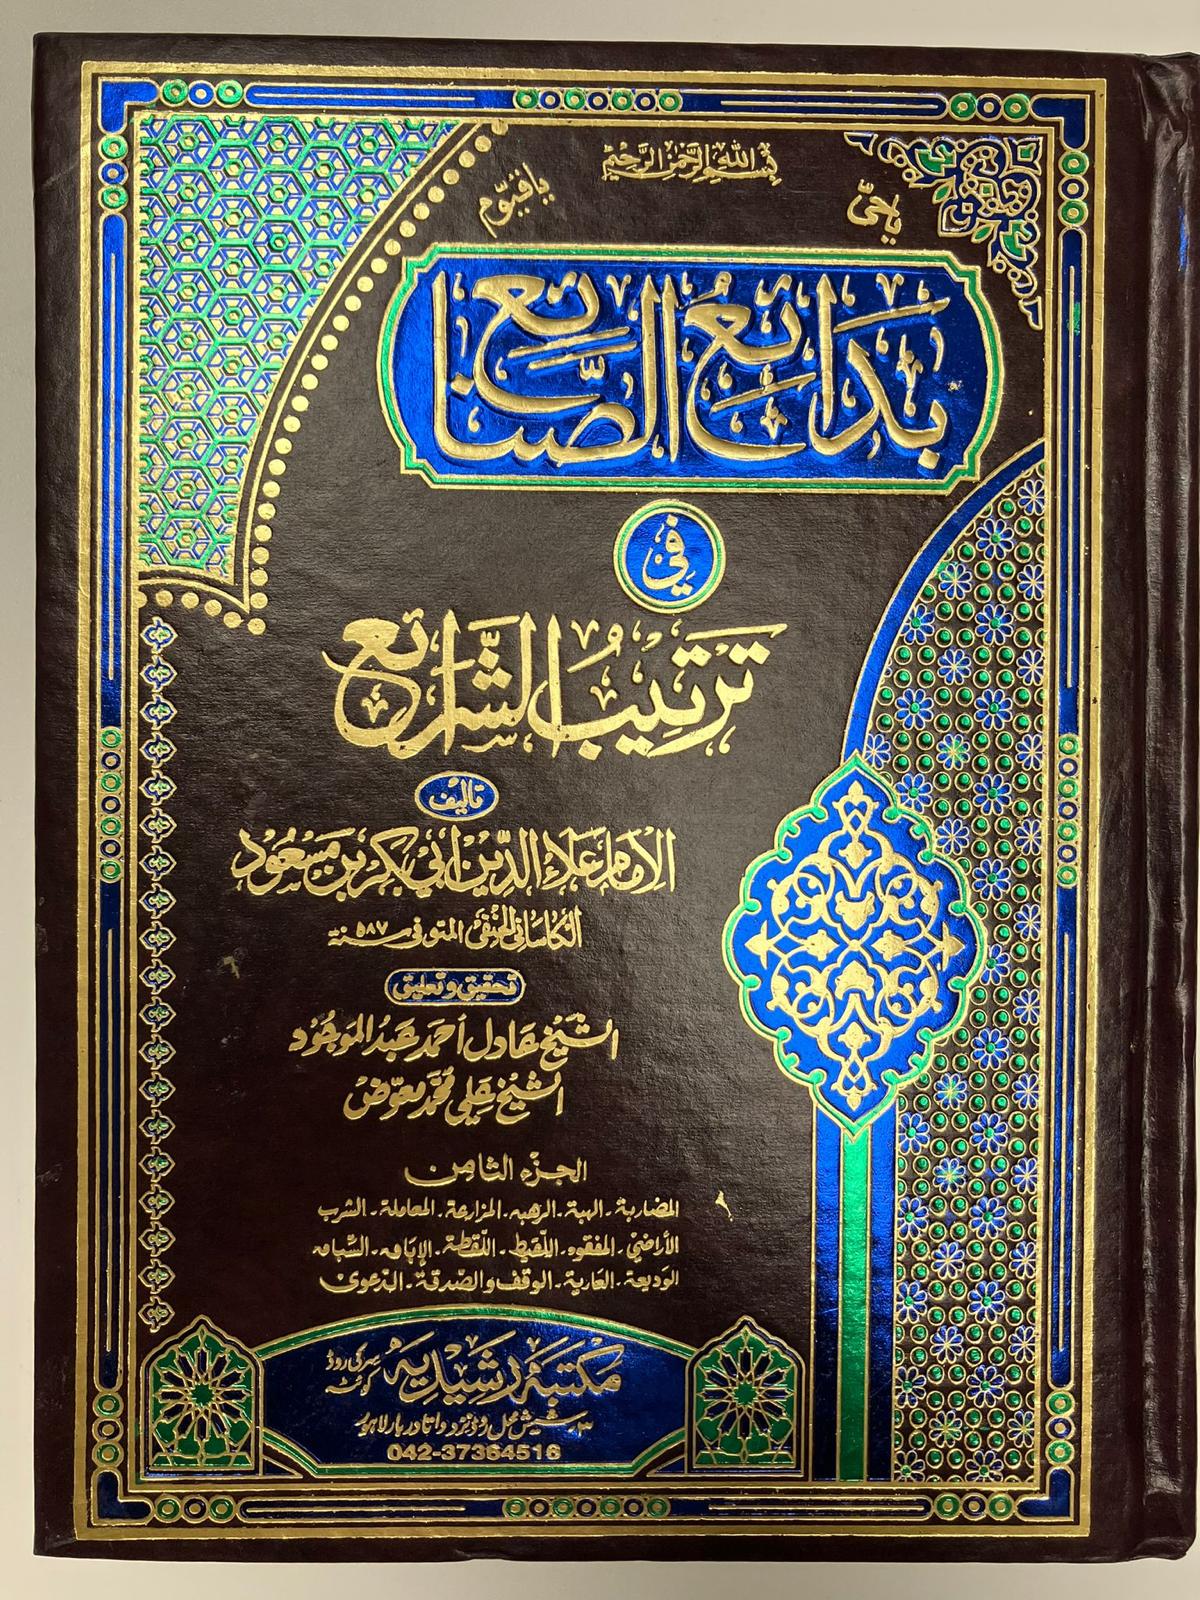 بسم الله الرحمن الرحيم
ياحيّ
ياقيّوم
بَدَائِعُ الصَّنَائِع
فِي
تَرتِيبُ الشَّرَائِع
تأليف
الإمام علاء الدين أبي بكر بن مسعود
الكاساني الحنفي المتوفى سنة ٥٨٧
تحقيق وتعليق
الشيخ عادل أحمد عبد الموجود
الشيخ علي محمد معوض
الجزء الثامن
المضاربة - الهبة - الرهن - المزارعة - المعاملة - الشرب
الأراضي - المفقود - اللقيط - اللقطة - الإباق - السباق
الوديعة - العارية - الوقف والصدقة - الدعوى
مکتبہ رشیدیہ
سرکی روڈ کوئٹہ
۳۔شیش محل روڈ نزد داتا دربار لاہور
042-37364516